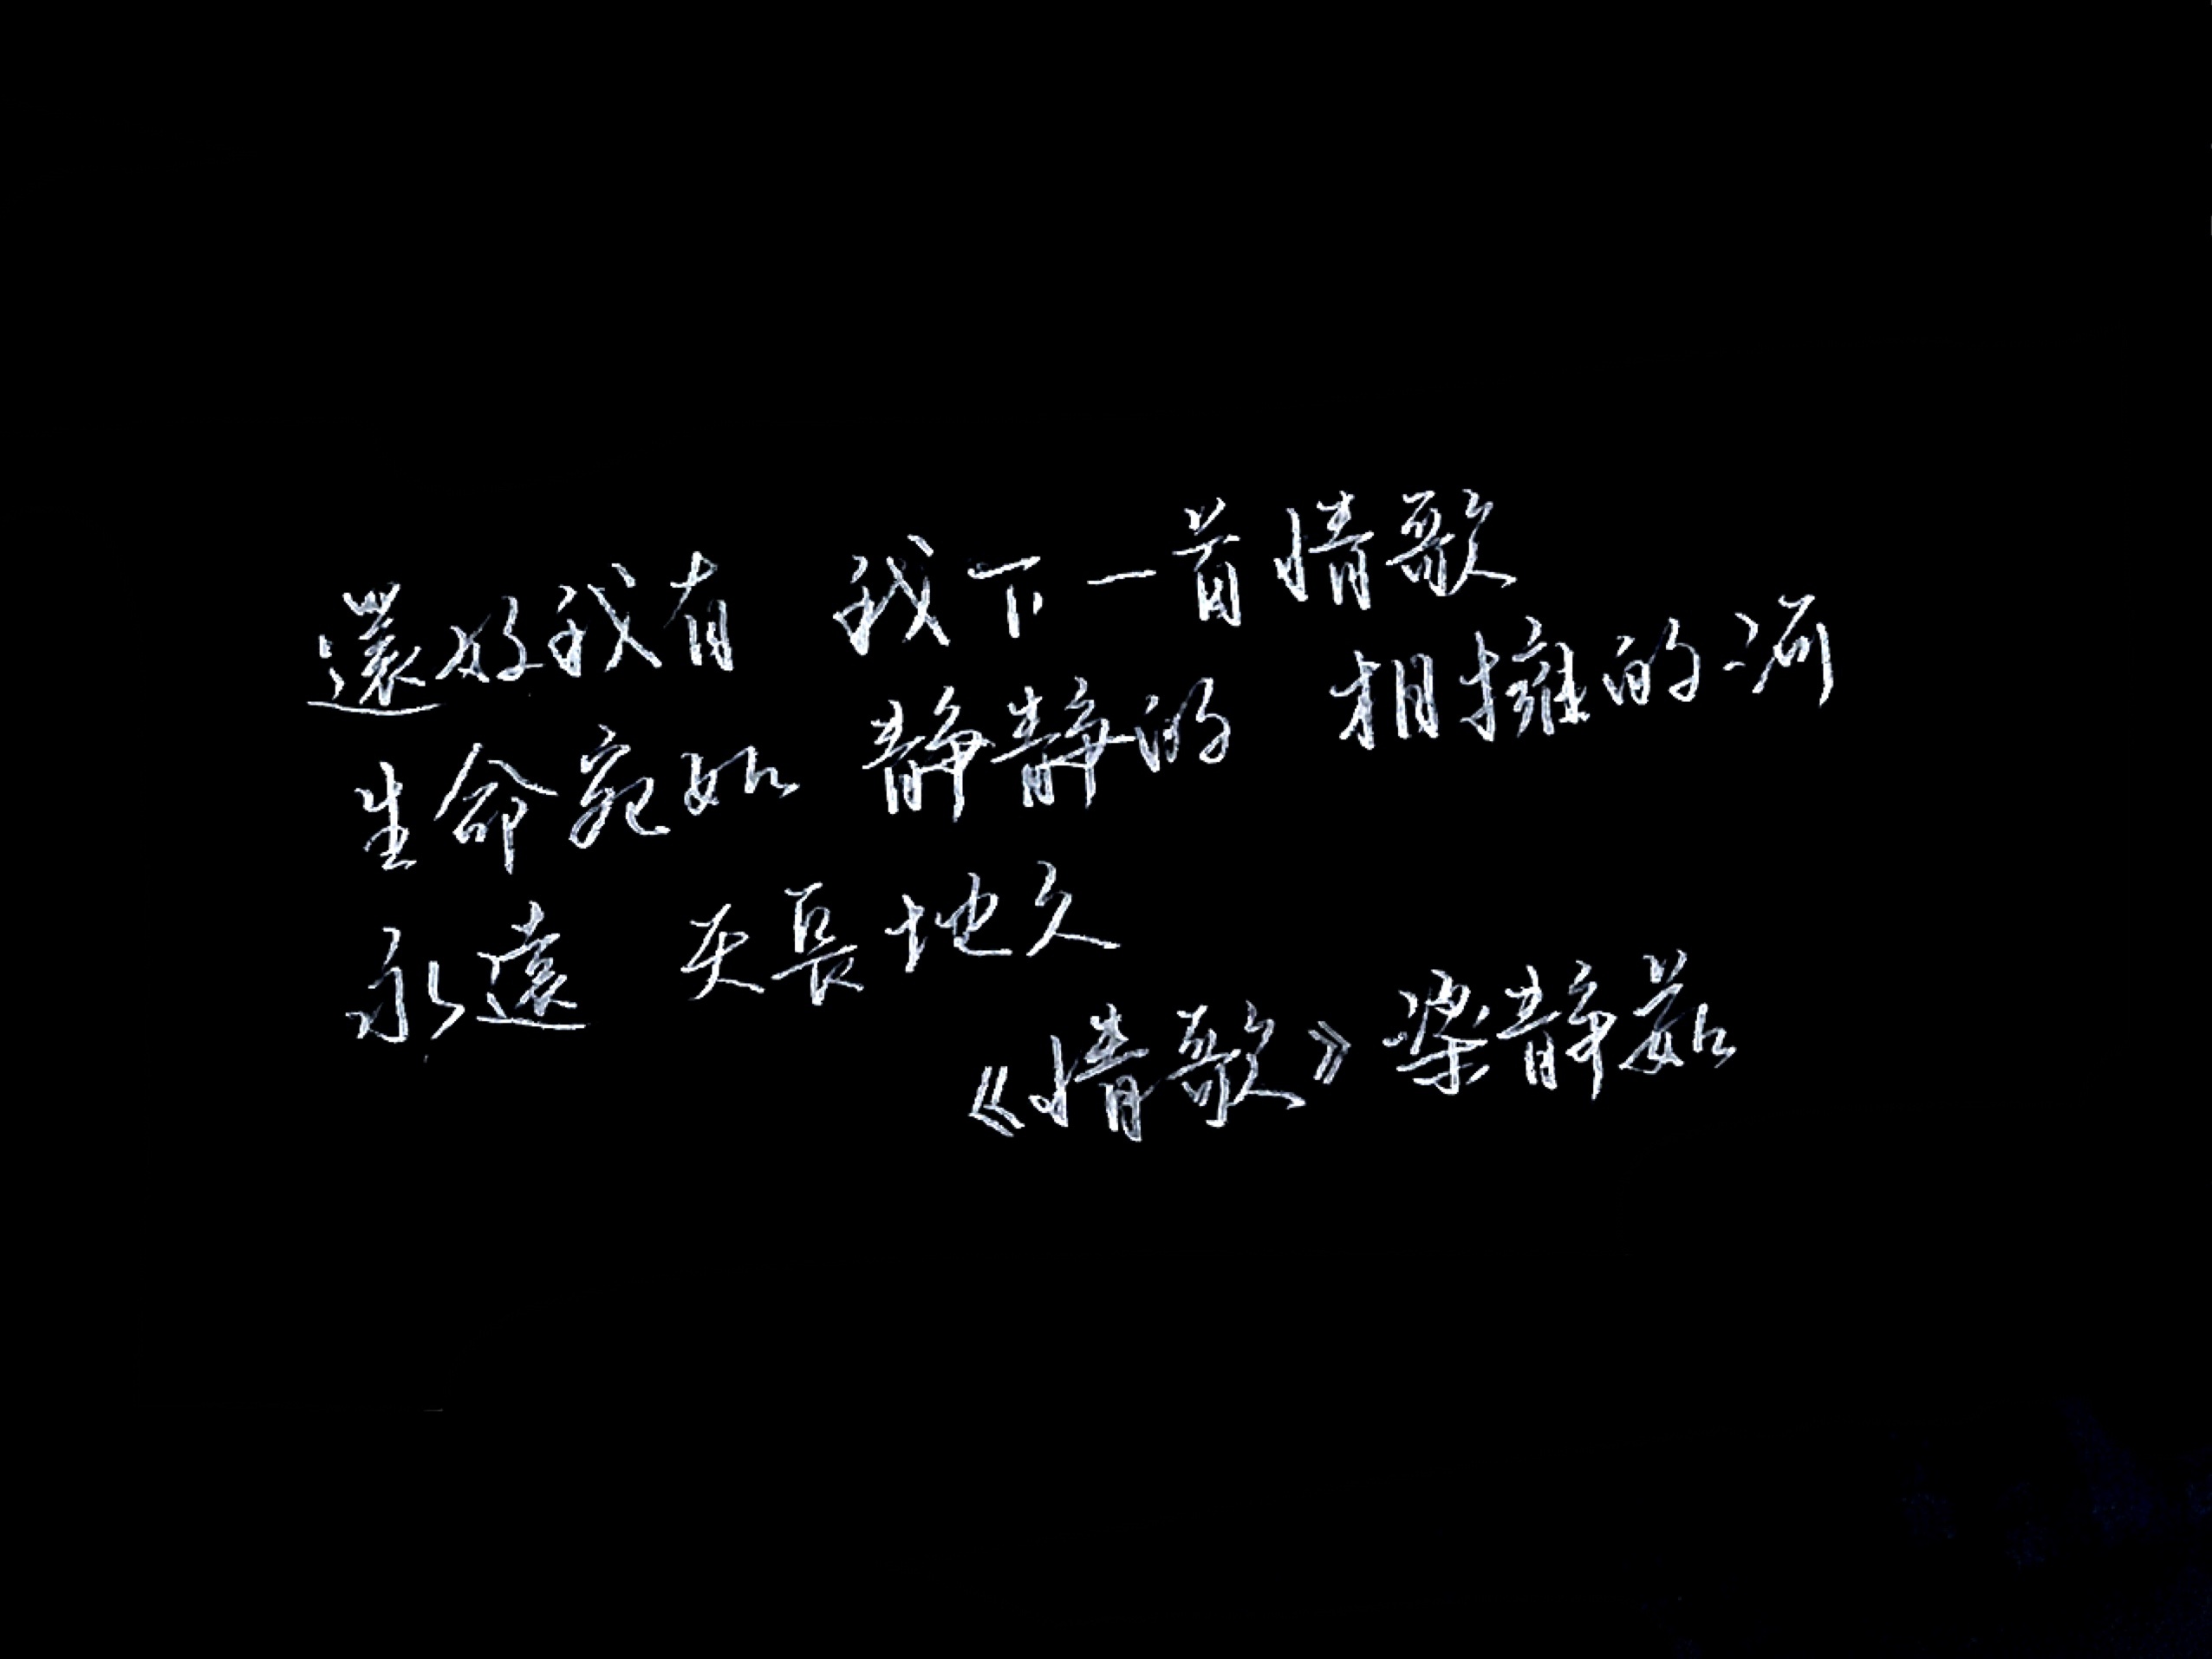 還好我有 我下一首情歌
生命宛如 静静的 相擁的河
永遠 天長地久
《情歌》梁静茹